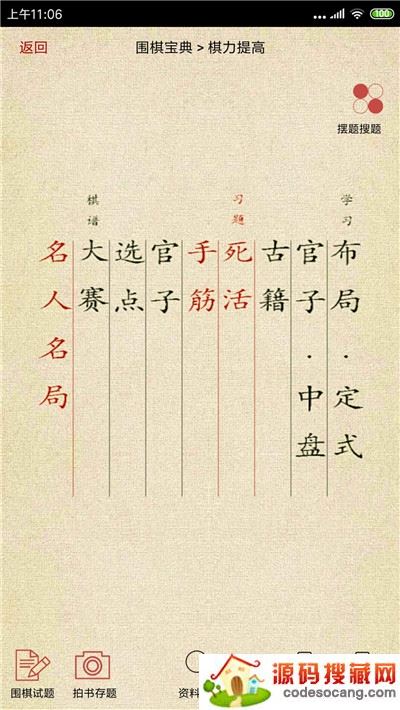 上午11:06
100
返回
围棋宝典 > 棋力提高
摆题搜题
学习
布局·定式
官子·中盘
古籍
习题
死活
手筋
官子
选点
棋谱
大赛
名人名局
围棋试题
拍书存题
资料
源码搜藏网
codesocang.com